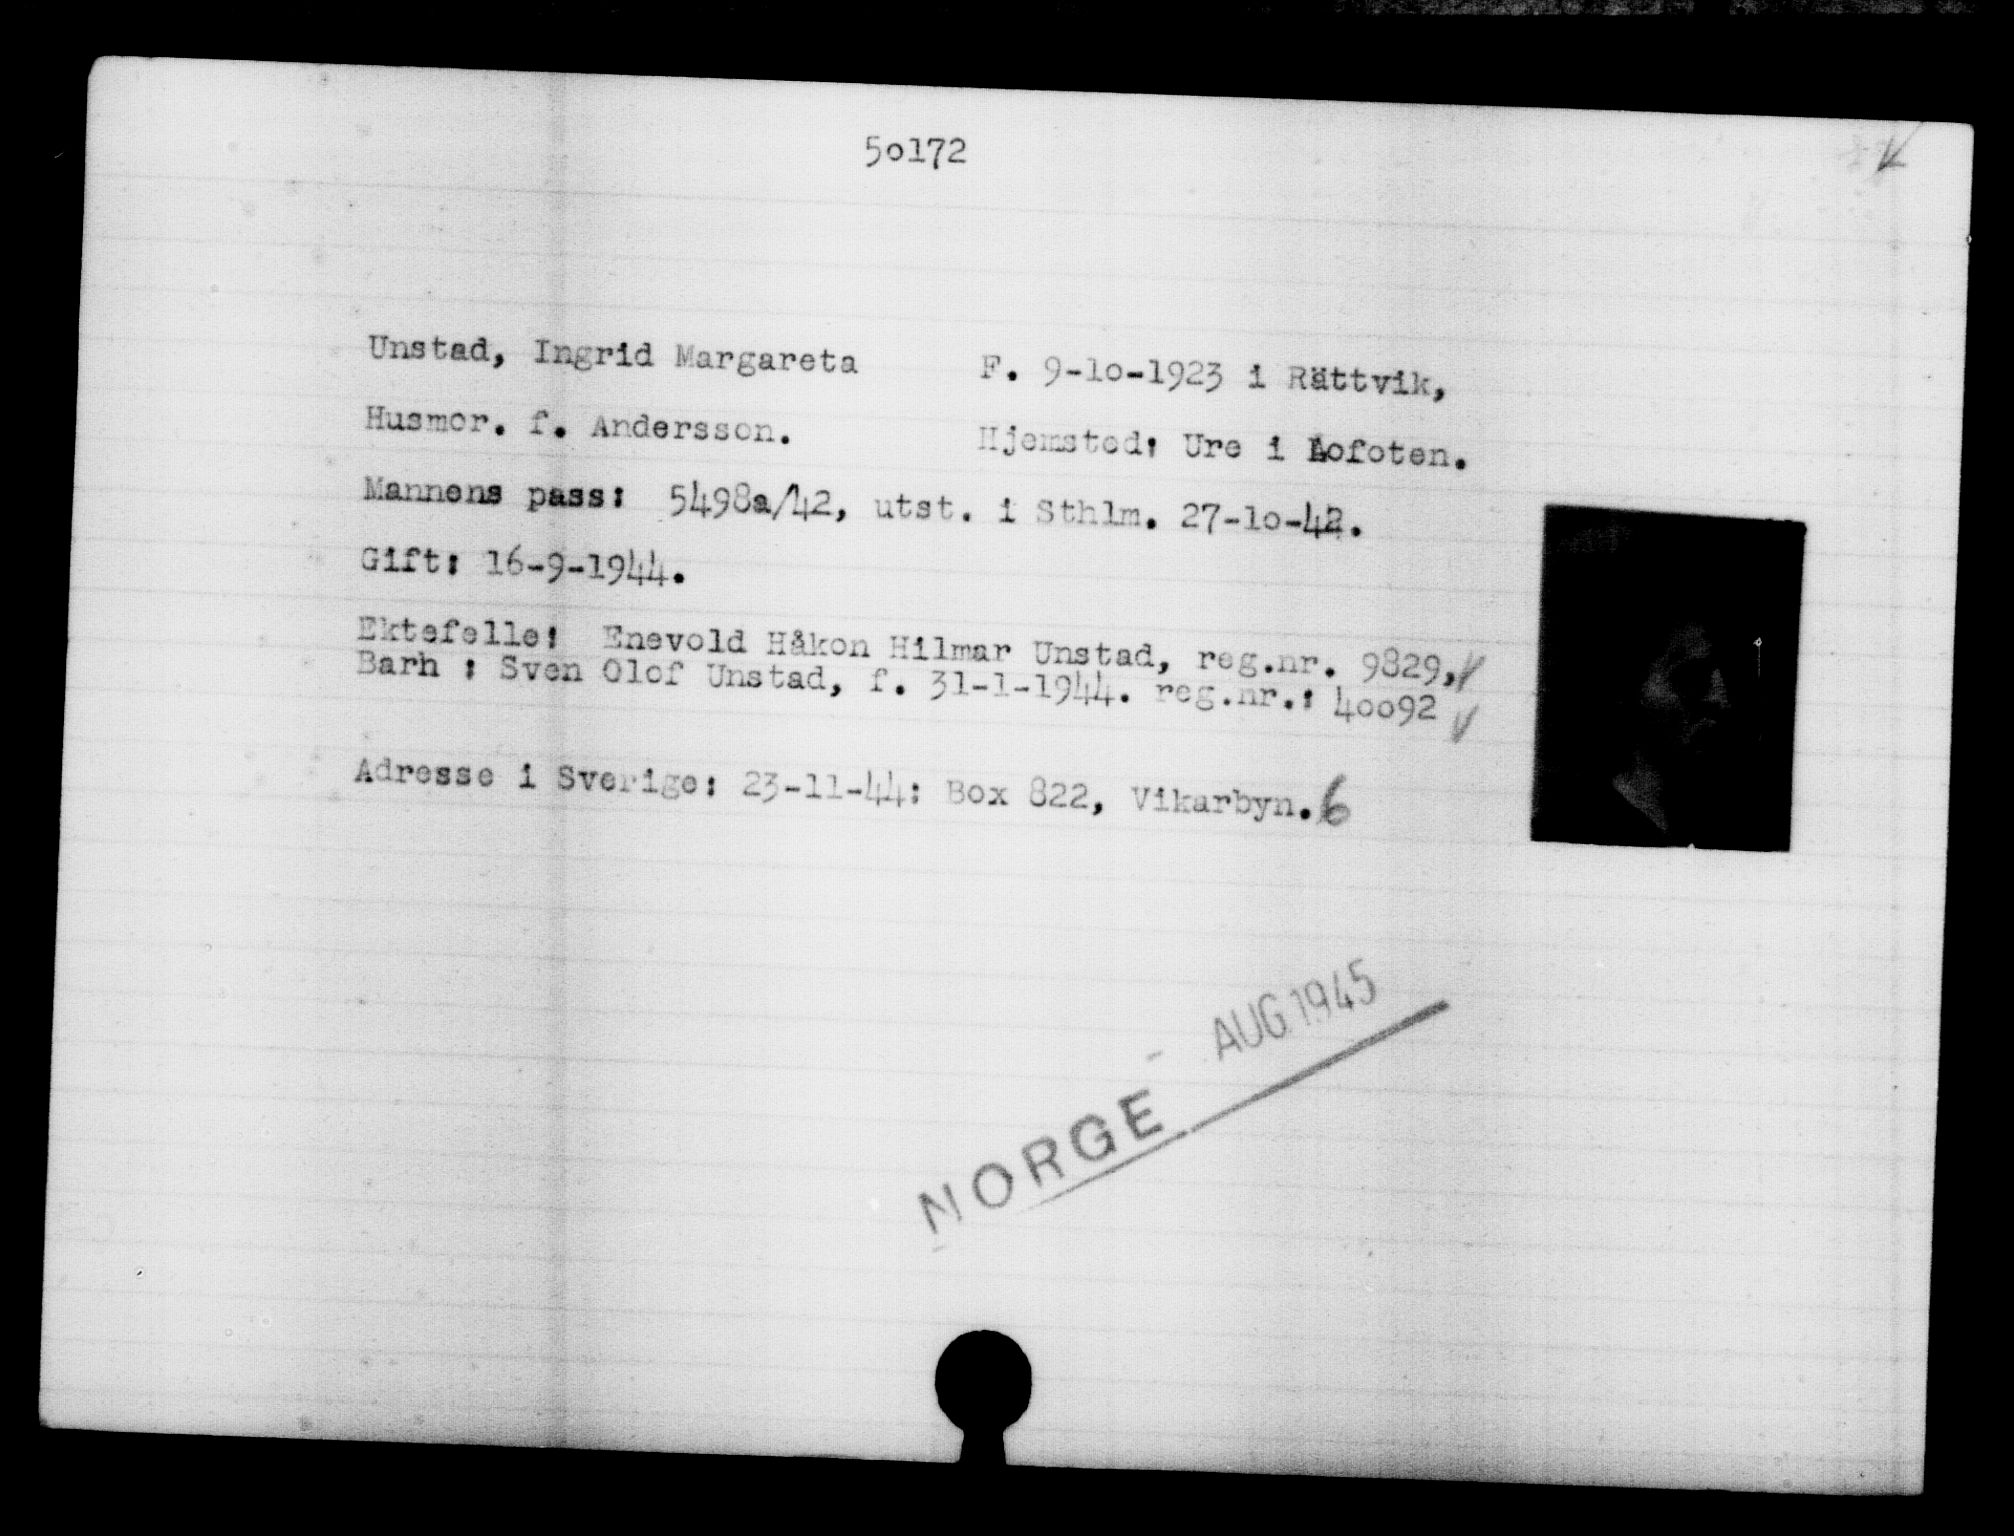 5o172
Unstad, Ingrid Margareta F. 9-1o-1923 i Rättvik,
Husmor. f. Andersson. Hjemsted: Ure i Lofoten.
Mannens pass: 5498a/42, utst. i Sthlm. 27-1o-42.
Gift: 16-9-1944.
Ektefelle: Enevold Håkon Hilmar Unstad, reg.nr. 9829,
Barh : Sven Olof Unstad, f. 31-1-1944. reg.nr.: 4oo92
Adresse i Sverige: 23-11-44: Box 822, Vikarbyn. 6
- AUG 1945
NORGE